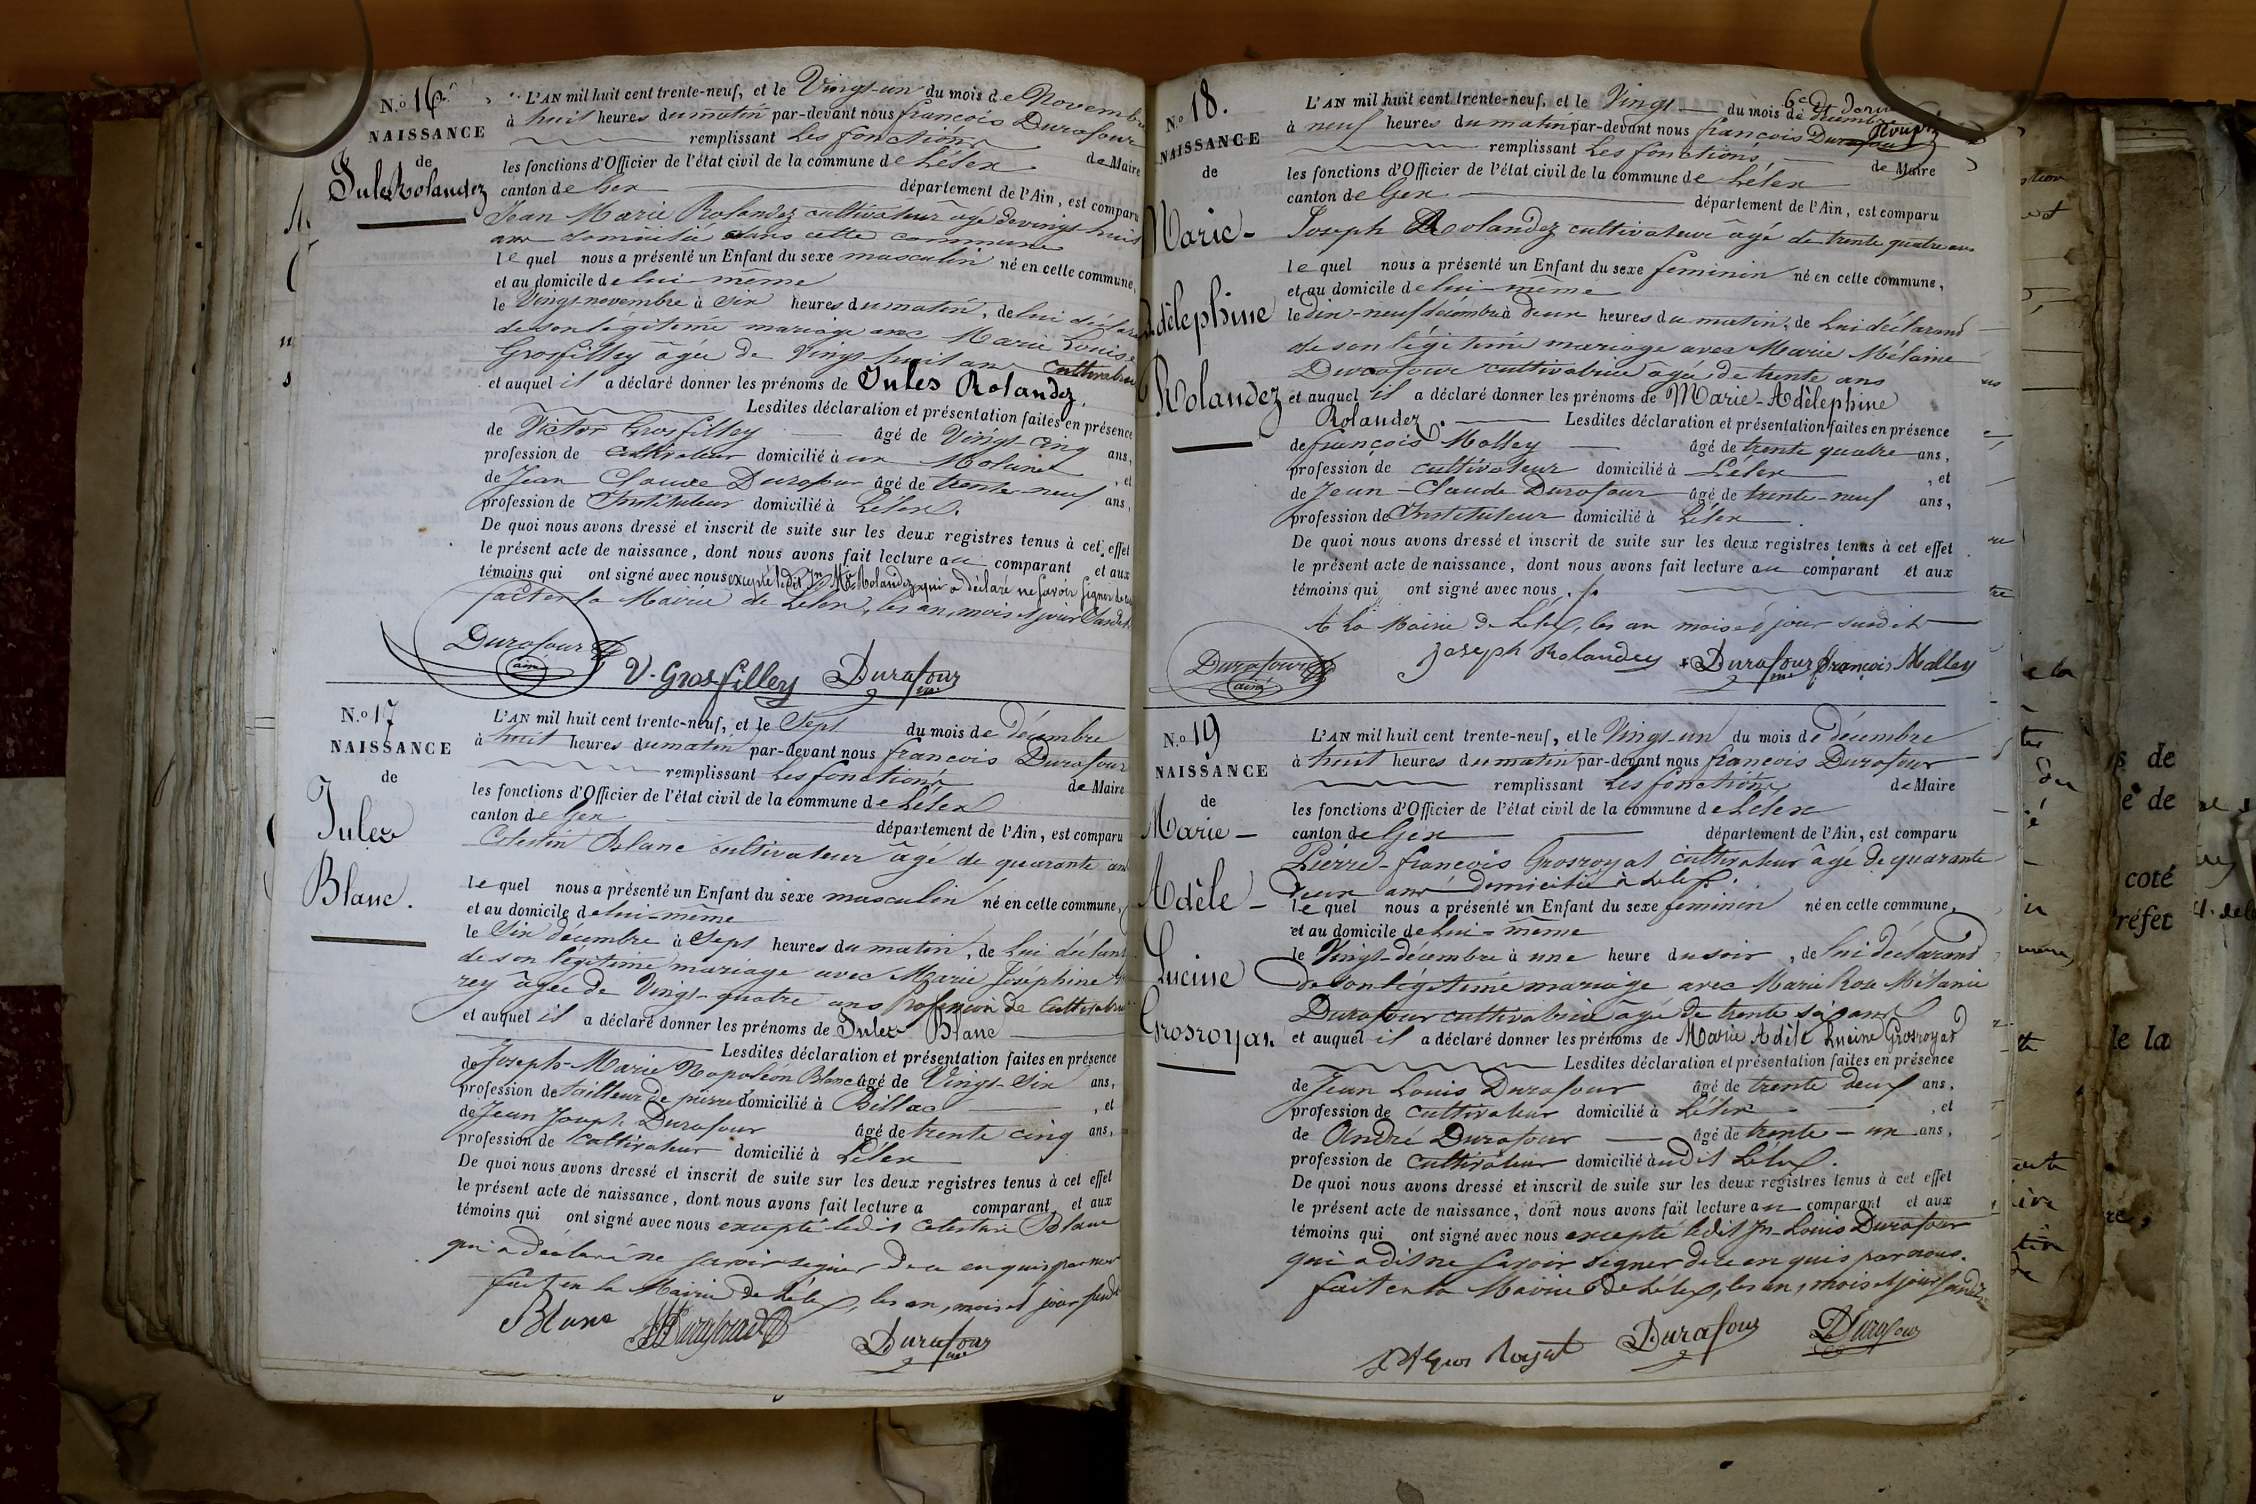 N.º 16
NAISSANCE
de
Jules Rolandez
L'AN mil huit cent trente-neuf, et le Vingt-un du mois de Novembre
à huit heures du matin par-devant nous françois Durafour
remplissant les fonctions de Maire
les fonctions d'Officier de l'état civil de la commune de Lélex
canton de Gex département de l'Ain, est comparu
Jean Marie Rolandez cultivateur âgé de vingt huit
ans domicilié dans cette commune
lequel nous a présenté un Enfant du sexe masculin né en cette commune,
et au domicile de lui-même
le Vingt novembre à six heures du matin, de lui déclarant
de son légitime mariage avec Marie Louise
Grosfilley âgée de Vingt huit ans cultivatrice
et auquel il a déclaré donner les prénoms de Jules Rolandez.
Lesdites déclaration et présentation faites en présence
de Victor Grosfilley âgé de Vingt cinq ans,
profession de cultivateur domicilié à un Molunes, et
de Jean Claude Durafour âgé de trente-neuf ans,
profession de Instituteur domicilié à Lélex.
De quoi nous avons dressé et inscrit de suite sur les deux registres tenus à cet effet
le présent acte de naissance, dont nous avons fait lecture au comparant et aux
témoins qui ont signé avec nous excepté ledit Jn Me Rolandez qui a déclaré ne savoir signer de ce
fait en la Mairie de Lélex, les an, mois et jour susdits
Durafour
ainé
V. Grosfilley
Durafour
N.º 17
NAISSANCE
de
Jules
Blanc.
L'AN mil huit cent trente-neuf, et le Sept du mois de décembre
à huit heures du matin par-devant nous françois Durafour
remplissant les fonctions de Maire
les fonctions d'Officier de l'état civil de la commune de Lélex
canton de Gex département de l'Ain, est comparu
Celestin Blanc cultivateur âgé de quarante ans
lequel nous a présenté un Enfant du sexe masculin né en cette commune,
et au domicile de lui-même
le Six décembre à Sept heures du matin, de lui déclarant
de son légitime mariage avec Marie Joséphine
rey âgée de Vingt-quatre ans profession de cultivatrice
et auquel il a déclaré donner les prénoms de Jules Blanc
Lesdites déclaration et présentation faites en présence
de Joseph-Marie Napoléon Blanc âgé de Vingt-Six ans,
profession de tailleur de pierre domicilié à Billac, et
de Jean Joseph Durafour âgé de trente cinq ans,
profession de cultivateur domicilié à Lélex
De quoi nous avons dressé et inscrit de suite sur les deux registres tenus à cet effet
le présent acte de naissance, dont nous avons fait lecture a comparant et aux
témoins qui ont signé avec nous excepté ledit Celestin Blanc
qui a déclaré ne savoir signer de ce enquis par nous
fait en la Mairie de Lélex, les an, mois et jour susdit
Blanc
Durafour
N.º 18.
NAISSANCE
de
Marie-
Adèlephine
Rolandez
L'AN mil huit cent trente-neuf, et le Vingt du mois de décembre
à neuf heures du matin par-devant nous françois Durafour
remplissant les fonctions de Maire
les fonctions d'Officier de l'état civil de la commune de Lélex
canton de Gex département de l'Ain, est comparu
Joseph Rolandez cultivateur âgé de trente quatre ans
lequel nous a présenté un Enfant du sexe feminin né en cette commune,
et au domicile de lui-même
le dix-neuf décembre à deux heures du matin, de lui déclarant
de son légitime mariage avec Marie Mélanie
Durafour cultivatrice agée de trente ans
et auquel il a déclaré donner les prénoms de Marie-Adèlephine
Rolandez. Lesdites déclaration et présentation faites en présence
de françois Malley âgé de trente quatre ans,
profession de cultivateur domicilié à Lélex, et
de Jean-Claude Durafour âgé de trente-neuf ans,
profession de Instituteur domicilié à Lélex
De quoi nous avons dressé et inscrit de suite sur les deux registres tenus à cet effet
le présent acte de naissance, dont nous avons fait lecture au comparant et aux
témoins qui ont signé avec nous.
A la Mairie de Lélex, les an mois et jour susdits
Durafour
ainé
Joseph Rolandez
Durafour
françois Malley
N.º 19
NAISSANCE
de
Marie-
Adèle-
Lucine
Grosroyat.
L'AN mil huit cent trente-neuf, et le Vingt-un du mois de décembre
à huit heures du matin par-devant nous francois Durafour
remplissant les fonctions de Maire
les fonctions d'Officier de l'état civil de la commune de Lélex
canton de Gex département de l'Ain, est comparu
Pierre-françois Grosroyat cultivateur âgé de quarante
deux ans domicilié à Lélex.
lequel nous a présenté un Enfant du sexe feminin né en cette commune,
et au domicile de lui-même
le Vingt décembre à une heure du soir, de lui déclarant
de son légitime mariage avec Marie Rose Mélanie
Durafour cultivatrice âgée de trente six ans
et auquel il a déclaré donner les prénoms de Marie Adèle Lucine Grosroyat
Lesdites déclaration et présentation faites en présence
de Jean Louis Durafour âgé de trente deux ans,
profession de cultivateur domicilié à Lélex, et
de André Durafour âgé de trente-un ans,
profession de cultivateur domicilié audit Lélex.
De quoi nous avons dressé et inscrit de suite sur les deux registres tenus à cet effet
le présent acte de naissance, dont nous avons fait lecture au comparant et aux
témoins qui ont signé avec nous excepté ledit Jn-Louis Durafour
qui a dit ne savoir signer de ce enquis par nous.
fait en la Mairie de Lélex, les an, mois et jour susdits
gros Royat
Durafour
Durafour